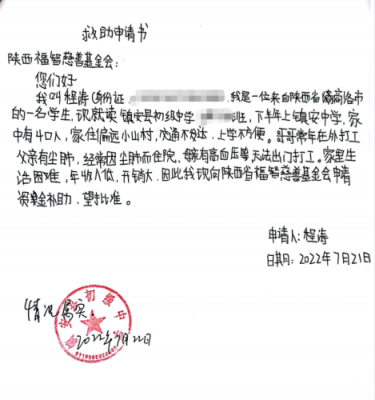 救助申请书
陕西福智慈善基金会:
您们好
我叫程涛(身份证 我是一位来自陕西省商洛市
的一名学生,现就读镇安县初级中学 班,下半年上镇安中学,家
中有4口人,家住偏远小山村,交通不发达,上学不方便。哥哥常年在外打工
父亲有尘肺,经常因尘肺而住院,母亲有高血压等无法出门打工。家里生
活困难,年收入低,开销大,因此我现向陕西省福智慈善基金会申请
资金补助,望批准。
申请人:程涛
日期:2022年7月21日
情况属实。
初级中
2022年7月22日